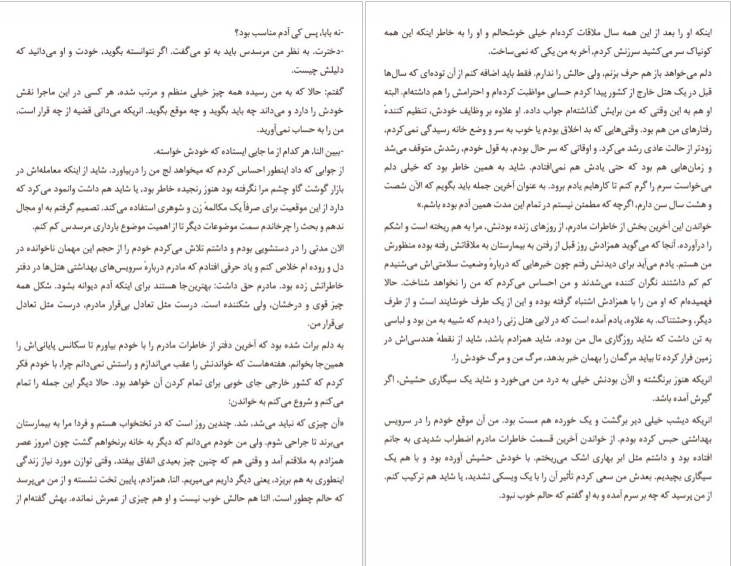 -نه بابا، پس کی آدم مناسب بود؟
-دخترت. به نظر من مرسدس باید به تو می‌گفت. اگر نتوانسته بگوید، خودت و او می‌دانید که
دلیلش چیست.
گفتم: حالا که به من رسیده همه چیز خیلی منظم و مرتب شده، هر کسی در این ماجرا نقش
خودش را دارد و می‌داند چه باید بگوید و چه موقع بگوید. انریکه می‌دانی قضیه از چه قرار است،
من را به حساب نمی‌آورید.
-ببین النا، هر کدام از ما جایی ایستاده که خودش خواسته.
از جوابی که داد اینطور احساس کردم که میخواهد لج من را دربیاورد. شاید از اینکه معامله‌اش در
بازار گوشت گاو چشم مرا نگرفته بود هنوز رنجیده خاطر بود، یا شاید هم داشت وانمود می‌کرد که
دارد از این موقعیت برای صرفاً یک مکالمهٔ زن و شوهری استفاده می‌کند. تصمیم گرفتم به او مجال
ندهم و بحث را چرخاندم سمت موضوعات دیگر تا از اهمیت موضوع بارداری مرسدس کم کنم.
الان مدتی را در دستشویی بودم و داشتم تلاش می‌کردم خودم را از حجم این مهمان ناخوانده در
دل و روده ام خلاص کنم و یاد حرفی افتادم که مادرم دربارهٔ سرویس‌های بهداشتی هتل‌ها در دفتر
خاطراتش زده بود. مادرم حق داشت: بهترین‌جا هستند برای اینکه آدم دیوانه بشود. شکل همه
چیز قوی و درخشان، ولی شکننده است. درست مثل تعادل بی‌قرار مادرم، درست مثل تعادل
بی‌قرار من.
به دلم برات شده بود که آخرین دفتر از خاطرات مادرم را با خودم بیاورم تا سکانس پایانی‌اش را
همین‌جا بخوانم. هفته‌هاست که خواندنش را عقب می‌اندازم و راستش نمی‌دانم چرا، با خودم فکر
کردم که کشور خارجی جای خوبی برای تمام کردن آن خواهد بود. حالا دیگر این جمله را تمام
می‌کنم و شروع می‌کنم به خواندن:
«آن چیزی که نباید می‌شد، شد. چندین روز است که در تختخواب هستم و فردا مرا به بیمارستان
می‌برند تا جراحی شوم. ولی من خودم می‌دانم که دیگر به خانه برنخواهم گشت چون امروز عصر
همزادم به ملاقتنم آمد و وقتی هم که چنین چیز بعیدی اتفاق بیفتد، وقتی توازن مورد نیاز زندگی
اینطوری به هم بریزد، یعنی دیگر داریم می‌میریم. النا، همزادم، پایین تخت نشسته و از من می‌پرسد
که حالم چطور است. النا هم حالش خوب نیست و او هم چیزی از عمرش نمانده. بهش گفته‌ام از
اینکه او را بعد از این همه سال ملاقات کرده‌ام خیلی خوشحالم و او را به خاطر اینکه این همه
کونیاک سر می‌کشید سرزنش کردم، آخر به من یکی که نمی‌ساخت.
دلم می‌خواهد باز هم حرف بزنم، ولی حالش را ندارم. فقط باید اضافه کنم از آن توده‌ای که سال‌ها
قبل در یک هتل خارج از کشور پیدا کردم حسابی مواظبت کرده‌ام و احترامش را هم داشته‌ام. البته
او هم به این وقتی که من برایش گذاشته‌ام جواب داده. او علاوه بر وظایف خودش، تنظیم کنندهٔ
رفتارهای من هم بود. وقتی‌هایی که بد اخلاق بودم یا خوب به سر و وضع خانه رسیدگی نمی‌کردم،
زودتر از حالت عادی رشد می‌کرد. و اوقاتی که سر حال بودم، به قول خودم، رشدش متوقف می‌شد
و زمان‌هایی هم بود که حتی یادش هم نمی‌افتادم. شاید به همین خاطر بود که خیلی دلم
می‌خواست سرم را گرم کنم تا کارهایم یادم برود. به عنوان آخرین جمله باید بگویم که الآن شصت
و هشت سال سن دارم، اگرچه که مطمئن نیستم در تمام این مدت همین آدم بوده باشم.»
خواندن این آخرین بخش از خاطرات مادرم، از روزهای زنده بودنش، مرا به هم ریخته است و اشکم
را درآورده. آنجا که می‌گوید همزادش روز قبل از رفتن به بیمارستان به ملاقاتش رفته بوده منظورش
من هستم. یادم می‌آید برای دیدنش رفتم چون خبرهایی که دربارهٔ وضعیت سلامتی‌اش می‌شنیدم
کم کم داشتند نگران کننده می‌شدند و من احساس می‌کردم که من را نخواهد شناخت. حالا
فهمیده‌ام که او من را با همزادش اشتباه گرفته بوده و این از یک طرف خوشایند است و از طرف
دیگر، وحشتناک. به علاوه، یادم آمده است که در لابی هتل زنی را دیدم که شبیه به من بود و لباسی
به تن داشت که شاید روزگاری مال من بوده. شاید همزادم باشد، شاید از نقطهٔ هندسی‌اش در
زمین فرار کرده تا بیاید مرگمان را بهمان خبر بدهد، مرگ من و مرگ خودش را.
انریکه هنوز برنگشته و الآن بودنش خیلی به درد من می‌خورد و شاید یک سیگاری حشیش، اگر
گیرش آمده باشد.
انریکه دیشب خیلی دیر برگشت و یک خورده هم مست بود. من آن موقع خودم را در سرویس
بهداشتی حبس کرده بودم. از خواندن آخرین قسمت خاطرات مادرم اضطراب شدیدی به جانم
افتاده بود و داشتم مثل ابر بهاری اشک می‌ریختم. با خودش حشیش آورده بود و با هم یک
سیگاری بچیدیم. بعدش من سعی کردم تأثیر آن را با یک ویسکی تشدید، یا شاید هم ترکیب کنم.
از من پرسید که چه بر سرم آمده و به او گفتم که حالم خوب نبود.